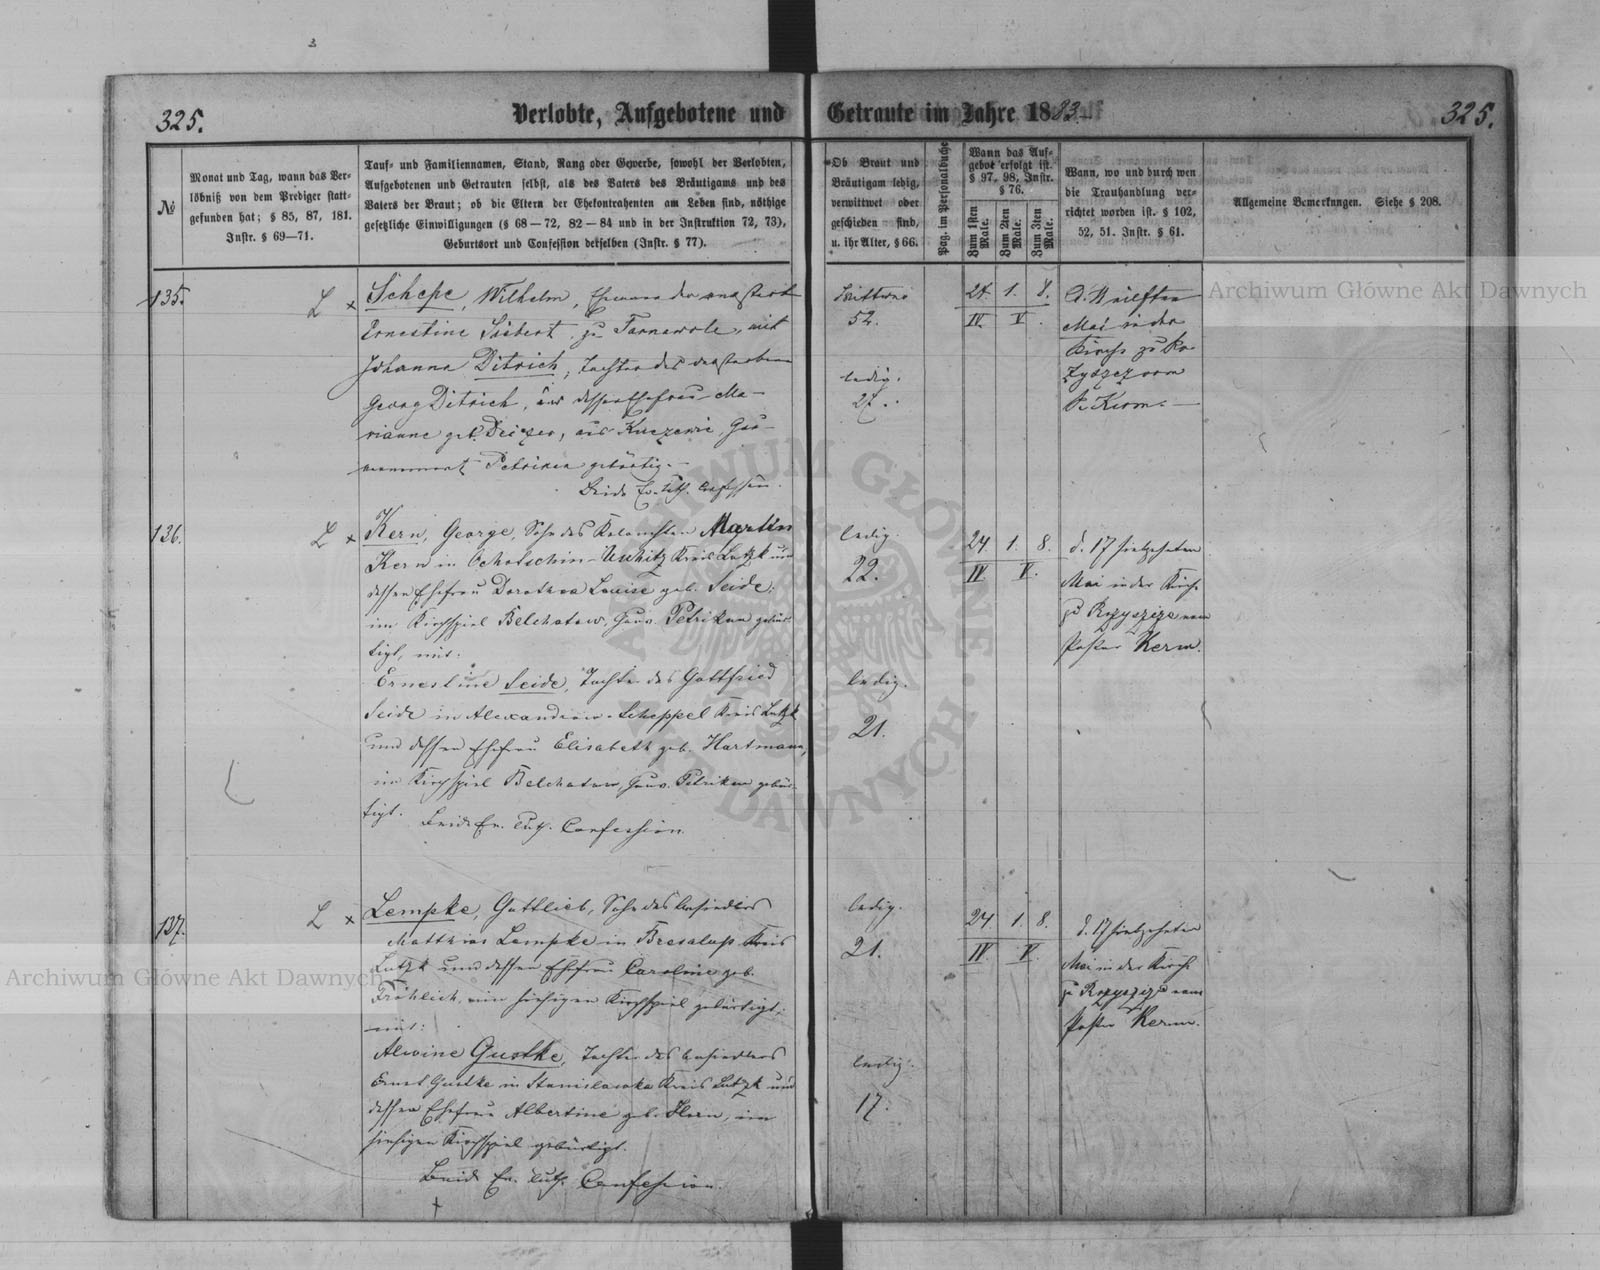 325.
Verlobte, Aufgebotene und Getraute im Jahre 1883.
325.
№
Monat und Tag, wann das Ver-
löbniß von dem Prediger statt-
gefunden hat; § 85, 87, 181.
Instr. § 69—71.
Tauf- und Familiennamen, Stand, Rang oder Gewerbe, sowohl der Verlobten,
Aufgebotenen und Getrauten selbst, als des Vaters des Bräutigams und des
Vaters der Braut; ob die Eltern der Ehekontrahenten am Leben sind, nöthige
gesetzliche Einwilligungen (§ 68—72, 82—84 und in der Instruktion 72, 73),
Geburtsort und Confession derselben (Instr. § 77).
Ob Braut und
Bräutigam ledig,
verwittwet oder
geschieden sind,
u. ihr Alter, § 66.
Pag. im Personalbuche
Wann das Auf-
gebot erfolgt ist.
§ 97, 98, Instr.
§ 76.
Zum 1sten Male.
Zum 2ten Male.
Zum 3ten Male.
Wann, wo und durch wen
die Trauhandlung ver-
richtet worden ist. § 102,
52, 51. Instr. § 61.
Allgemeine Bemerkungen. Siehe § 208.
135.
L x
Schepe, Wilhelm,
Ernestine Siebert, zu mit
Johanna Ditrich, Tochter des verstorbenen
Georg Ditrich, dessen Ehefrau Ma-
rianne geb. aus Gou-
vernement Petrikau gebürtig.
Beide Ev. Luth. Confession.
52.
ledig.
24. 1. 8.
IV. V.
Mai in der
Kirche zu Ro-
zyszcz vom
P. Kerm.
136.
L x
Kern, George, Sohn des Kolonisten Martin
Kern in Kreis Lutzk und
dessen Ehefrau Dorothea Louise geb. Seide,
im Kirchspiel Belchatow, Gouv. Petrikau gebür-
tigt, mit:
Ernestine Seide, Tochter des Gottfried
Seide in Alexandrow-Scheppel Kreis Lutzk
und dessen Ehefrau Elisabeth geb. Hartmann,
im Kirchspiel Belchatow, Gouv. Petrikau gebür-
tigt.
Beide Ev. Luth. Confession.
ledig.
22.
ledig.
21.
24. 1. 8.
IV. V.
d. 17 siebzehnten
Mai in der Kirche
zu Rozyszcze vom
Pastor Kerm.
137.
L x
Lempke, Gottlieb, Sohn des Ansiedlers
Matthias Lempke in Kreis
Lutzk und dessen Ehefrau Caroline geb.
Fröhlich, im hiesigen Kirchspiel gebürtigt,
mit:
Alwine Gustke, Tochter des Ansiedlers
Ernst Gustke in Stanislawka Kreis Lutzk und
dessen Ehefrau Albertine geb. im
hiesigen Kirchspiel gebürtigt.
Beide Ev. Luth. Confession.
ledig.
21.
ledig.
17.
24. 1. 8.
IV. V.
d. 17 siebzehnten
Mai in der Kirche
zu Rozyszcze vom
Pastor Kerm.
Archiwum Główne Akt Dawnych
Archiwum Główne Akt Dawnych
ARCHIWUM GŁÓWNE AKT DAWNYCH